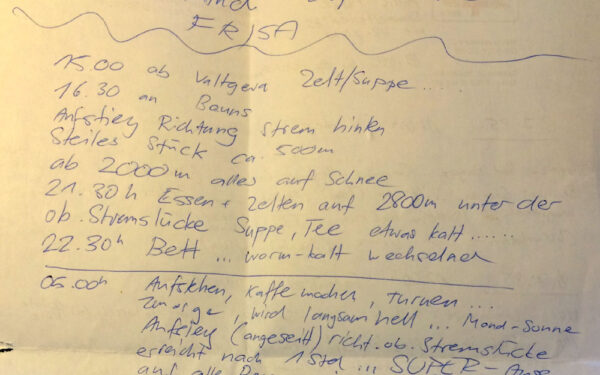 und
FRISA
15.00 ab Valtgeva Zelt/Suppe.....
16.30 an Bauns
Aufstieg Richtung strem hinten
Steiles Stück ca. 500m
ab 2000m alles auf Schnee
21.30h Essen + Zelten auf 2800m unter der
ob. Stremslücke Suppe, Tee etwas kalt......
22.30h Bett ... warm-kalt wechselnd
06.00h. Aufstehen, Kaffe machen, turnen ...
Zmorge, wird langsam hell ... Mond-Sonne
Aufstieg (angeseilt) richt. ob. Stremslücke
erreicht nach 1 Std ... SUPER-
auf alle